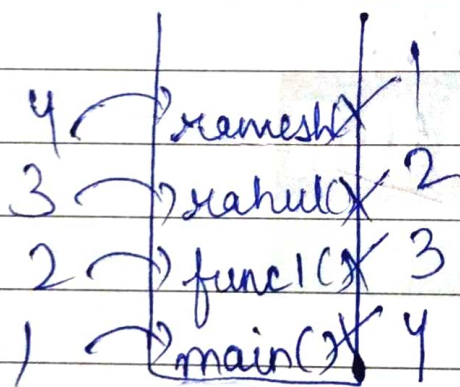 4 ramesh() 1
3 rahul() 2
2 func1() 3
1 main() 4